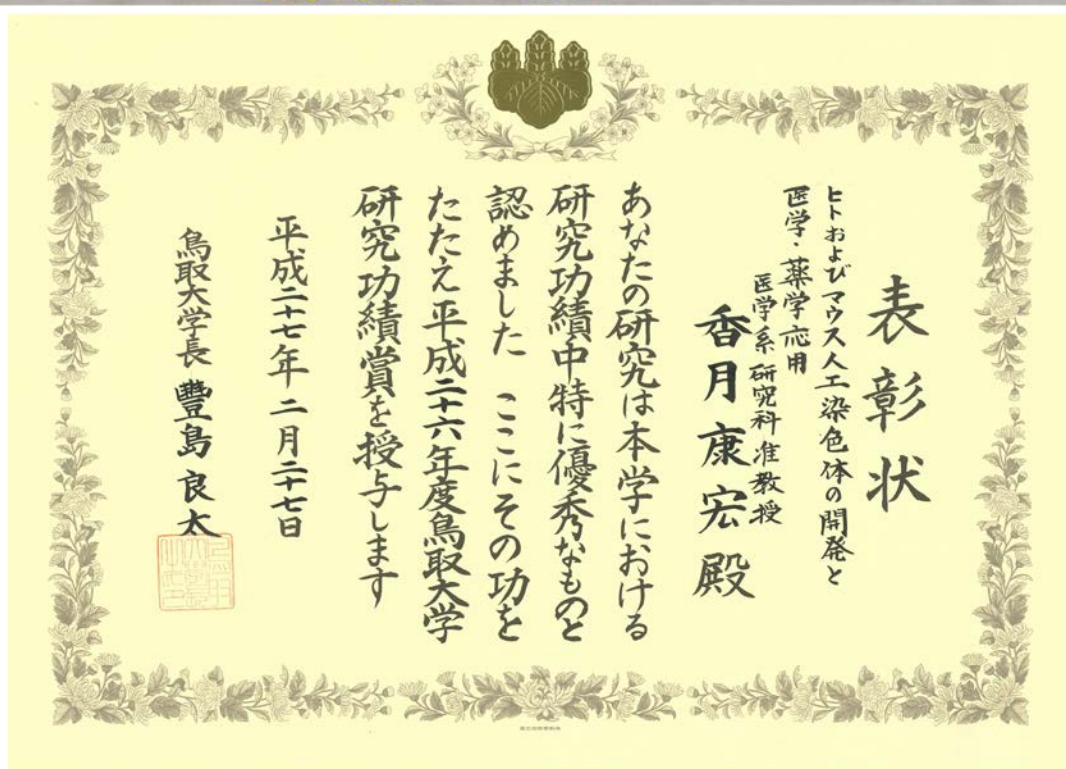 表彰状
ヒトおよびマウス人工染色体の開発と
医学・薬学応用
医学系研究科准教授
香月康宏殿
あなたの研究は本学における
研究功績中特に優秀なものと
認めました　ここにその功を
たたえ平成二十六年度鳥取大学
研究功績賞を授与します
平成二十七年二月二十七日
鳥取大学長 豐島良太